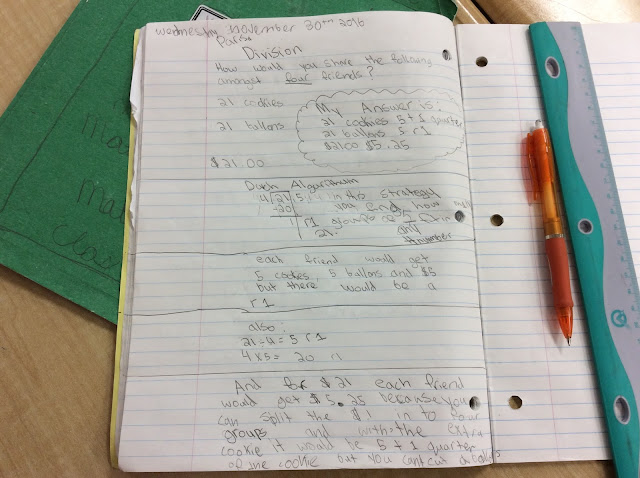 Wednesday November 30th 2016
Division
How would you share the following
amongst four friends?
21 cookies
21 ballons
$21.00
My Answer is:
21 cookies 5 + 1 quarter
21 ballons 5 r1
$21.00 $5.25
Dutch Algorithum
4 21 5 in this strategy
-20 you find how many
1 r1 groups of in
21. any
number
each friend would get
5 cookies, 5 ballons and $5
but there would be a
r1
also:
21÷4= 5 r1
4x5= 20 r1
And for $21 each friend
would get $5.25 because you
can split the $1 in to four
groups and with the extra
cookie it would be 5 + 1 quarter
of the cookie but you cant cut a